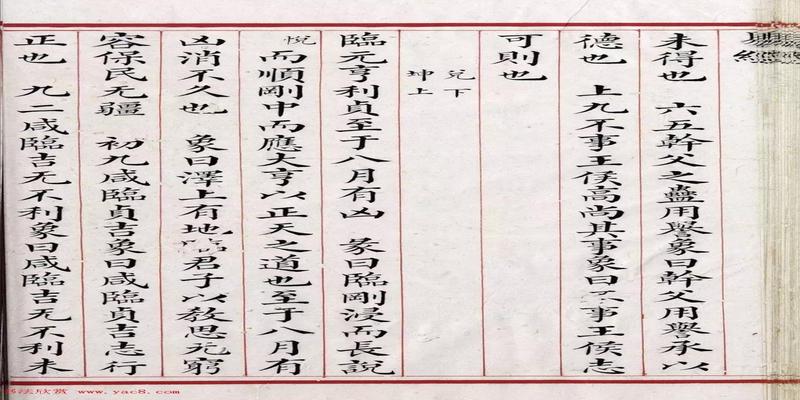 未得也 六五幹父之蠱用譽象曰幹父用譽承以
德也 上九不事王侯高尚其事象曰不事王侯志
可則也
兌下
坤上
臨元亨利貞至于八月有凶 彖曰臨剛浸而長說
悅 而順剛中而應大亨以正天之道也至于八月有
凶消不久也 象曰澤上有地臨君子以教思无窮
容保民无疆 初九咸臨貞吉象曰咸臨貞吉志行
正也 九二咸臨吉无不利象曰咸臨吉无不利未
法欣赏 www.yac8.com